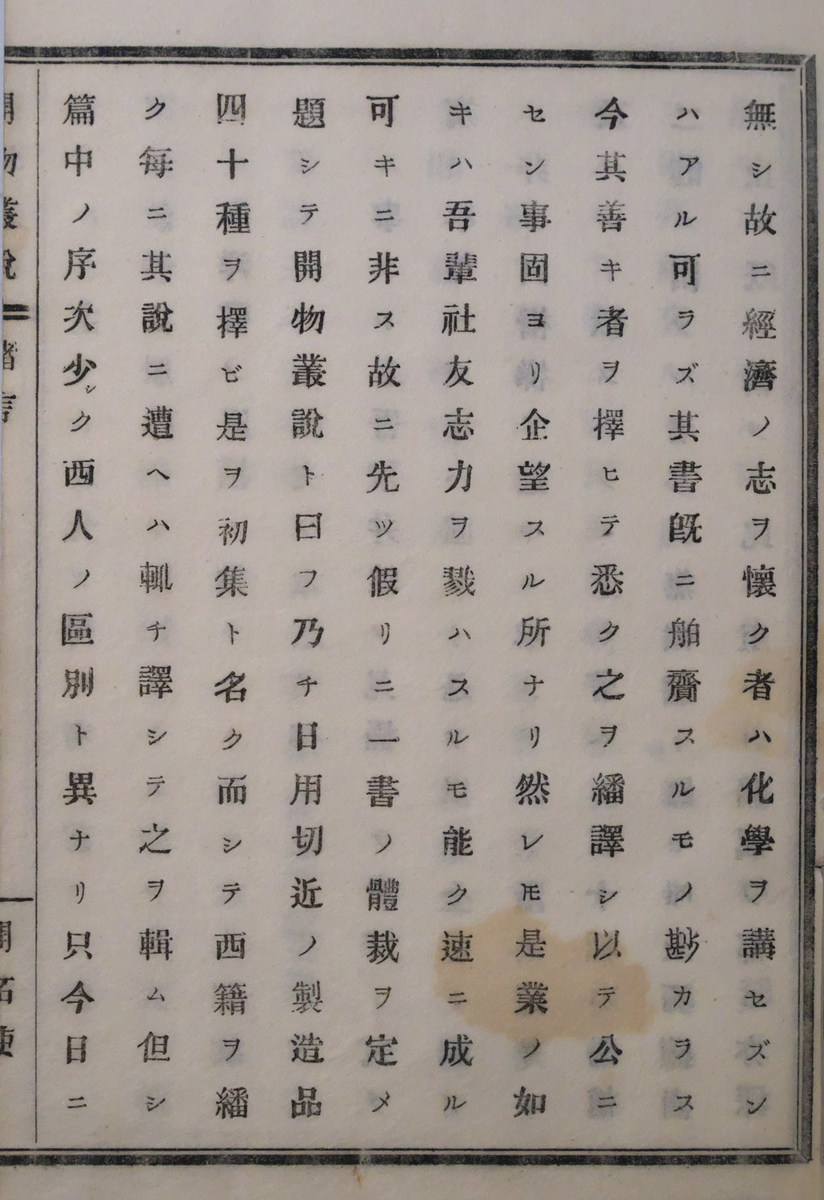 無シ故ニ經濟ノ志ヲ懷ク者ハ化學ヲ講セズン
ハアル可ラズ其書旣ニ舶齎スルモノ尠カラス
今其善キ者ヲ擇ヒテ悉ク之ヲ繙譯シ以テ公ニ
セン事固ヨリ企望スル所ナリ然レ𪜈是業ノ如
キハ吾輩社友志力ヲ戮ハスルモ能ク速ニ成ル
可キニ非ス故ニ先ツ假リニ一書ノ體裁ヲ定メ
題シテ開物叢說ト曰フ乃チ日用切近ノ製造品
四十種ヲ擇ビ是ヲ初集ト名ク而シテ西籍ヲ繙
ク每ニ其說ニ遭ヘハ輒チ譯シテ之ヲ輯ム但シ
篇中ノ序次少シク西人ノ區別ト異ナリ只今日ニ
開物叢說 緖言 開拓使